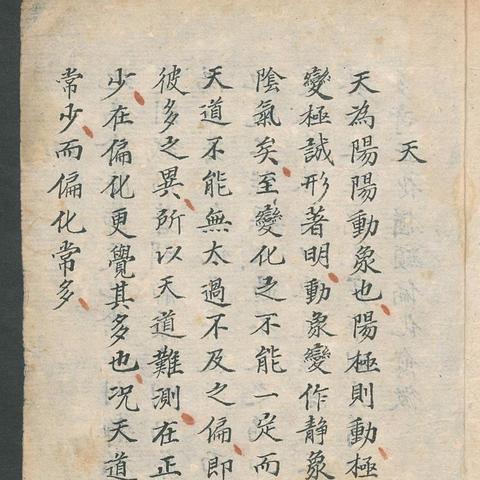 天
天為陽陽動象也陽極則動極
變極誠形著明動象變作静象
陰氣矣至變化之不能一定而
天道不能無太過不及之偏即
彼多之異所以天道難測在正
少在偏化更覺其多也况天道
常少而偏化常多